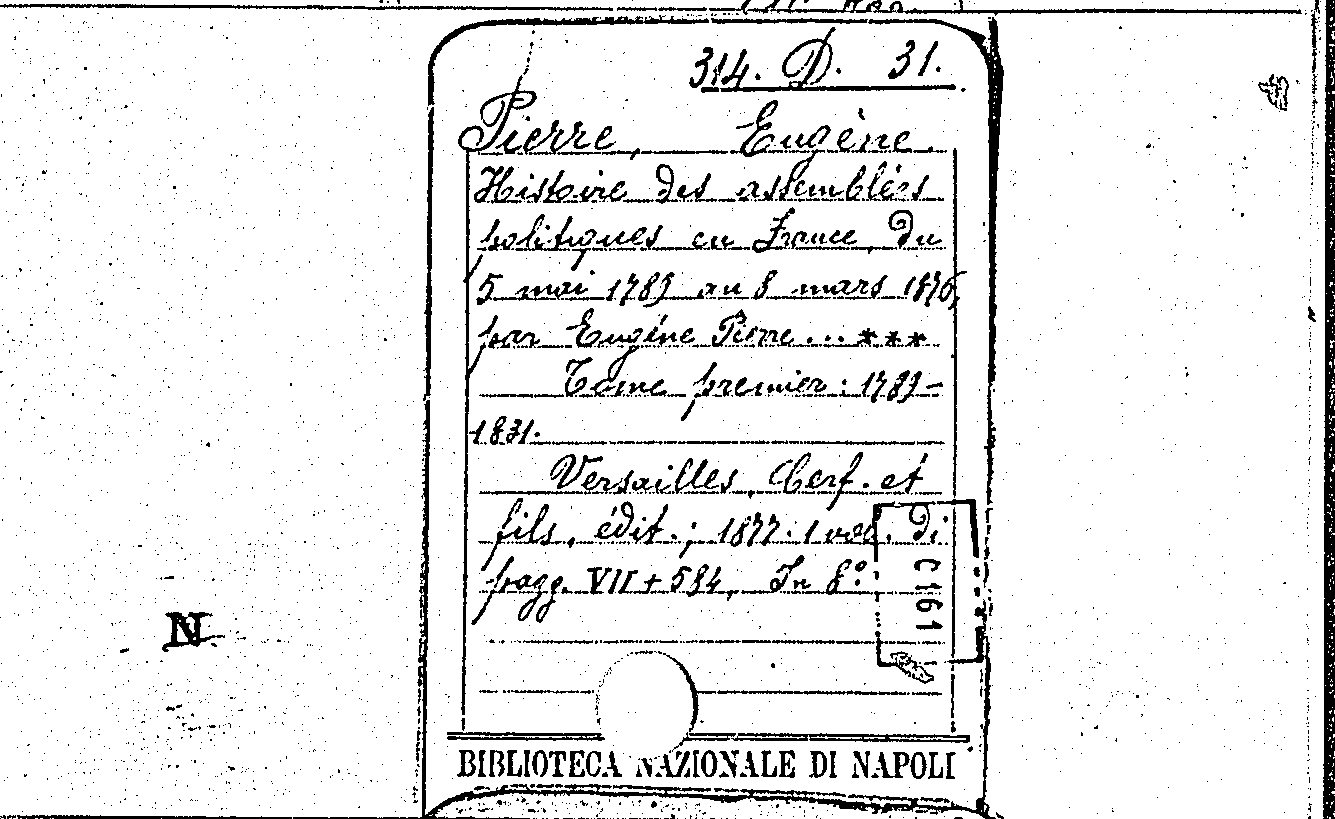 314. D. 31.
Pierre, Eugène.
Histoire des assemblées
politiques en France, du
5 mai 1789 au 8 mars 1876,
par Eugène Pierre... ***
Tome premier: 1789-
1831.
Versailles, Cerf. et
fils, édit.; 1877. 1 vol. di
pagg. VII + 584, In 8°.
C1161
N
BIBLIOTECA NAZIONALE DI NAPOLI